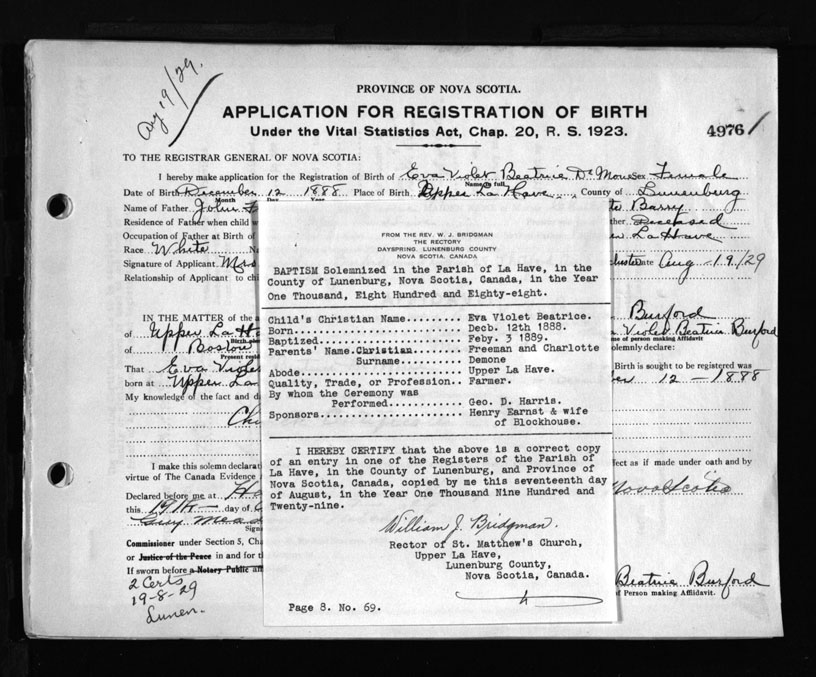 Aug 19/29.
PROVINCE OF NOVA SCOTIA.
APPLICATION FOR REGISTRATION OF BIRTH
Under the Vital Statistics Act, Chap. 20, R. S. 1923.
4976
TO THE REGISTRAR GENERAL OF NOVA SCOTIA:
I hereby make application for the Registration of Birth of Eva Violet Beatrice De Mone Sex Female
Name in full
Date of Birth December 12 1888 Place of Birth Upper La Have County of Lunenburg
Month Day Year
Name of Father John Barry
Residence of Father when child Deceased
Occupation of Father at Birth of La Have
Race White
Signature of Applicant Mrs Date Aug-19/29
Relationship of Applicant to chi
IN THE MATTER of the a Burford
of Upper La Ha Violet Beatrice Burford
me of person making Affidavit
of Boston olemnly declare:
Present resid
That Eva Violet Birth is sought to be registered was
born at Upper La 12-1888
My knowledge of the fact and
I make this solemn declarat fect as if made under oath and by
virtue of The Canada Evidence
Declared before me at Nova Scotia
this 19th day of
Commissioner under Section 5, Cha
or Justice of the Peace in and for t
If sworn before a Notary Public aff Beatrice Burford
of Person making Affidavit.
2 Certs
19-8-29
Lunen.
FROM THE REV. W. J. BRIDGMAN
THE RECTORY
DAYSPRING, LUNENBURG COUNTY
NOVA SCOTIA, CANADA
BAPTISM Solemnized in the Parish of La Have, in the
County of Lunenburg, Nova Scotia, Canada, in the Year
One Thousand, Eight Hundred and Eighty-eight.
Child's Christian Name......... Eva Violet Beatrice.
Born........................... Decb. 12th 1888.
Baptized....................... Feby. 3 1889.
Parents' Name.Christian........ Freeman and Charlotte
Surname.......... Demone
Abode.......................... Upper La Have.
Quality, Trade, or Profession.. Farmer.
By whom the Ceremony was
Performed.......... Geo. D. Harris.
Sponsors....................... Henry Earnst & wife
of Blockhouse.
I HEREBY CERTIFY that the above is a correct copy
of an entry in one of the Registers of the Parish of
La Have, in the County of Lunenburg, and Province of
Nova Scotia, Canada, copied by me this seventeenth day
of August, in the Year One Thousand Nine Hundred and
Twenty-nine.
William J. Bridgman.
Rector of St. Matthew's Church,
Upper La Have,
Lunenburg County,
Nova Scotia, Canada.
Page 8. No. 69.